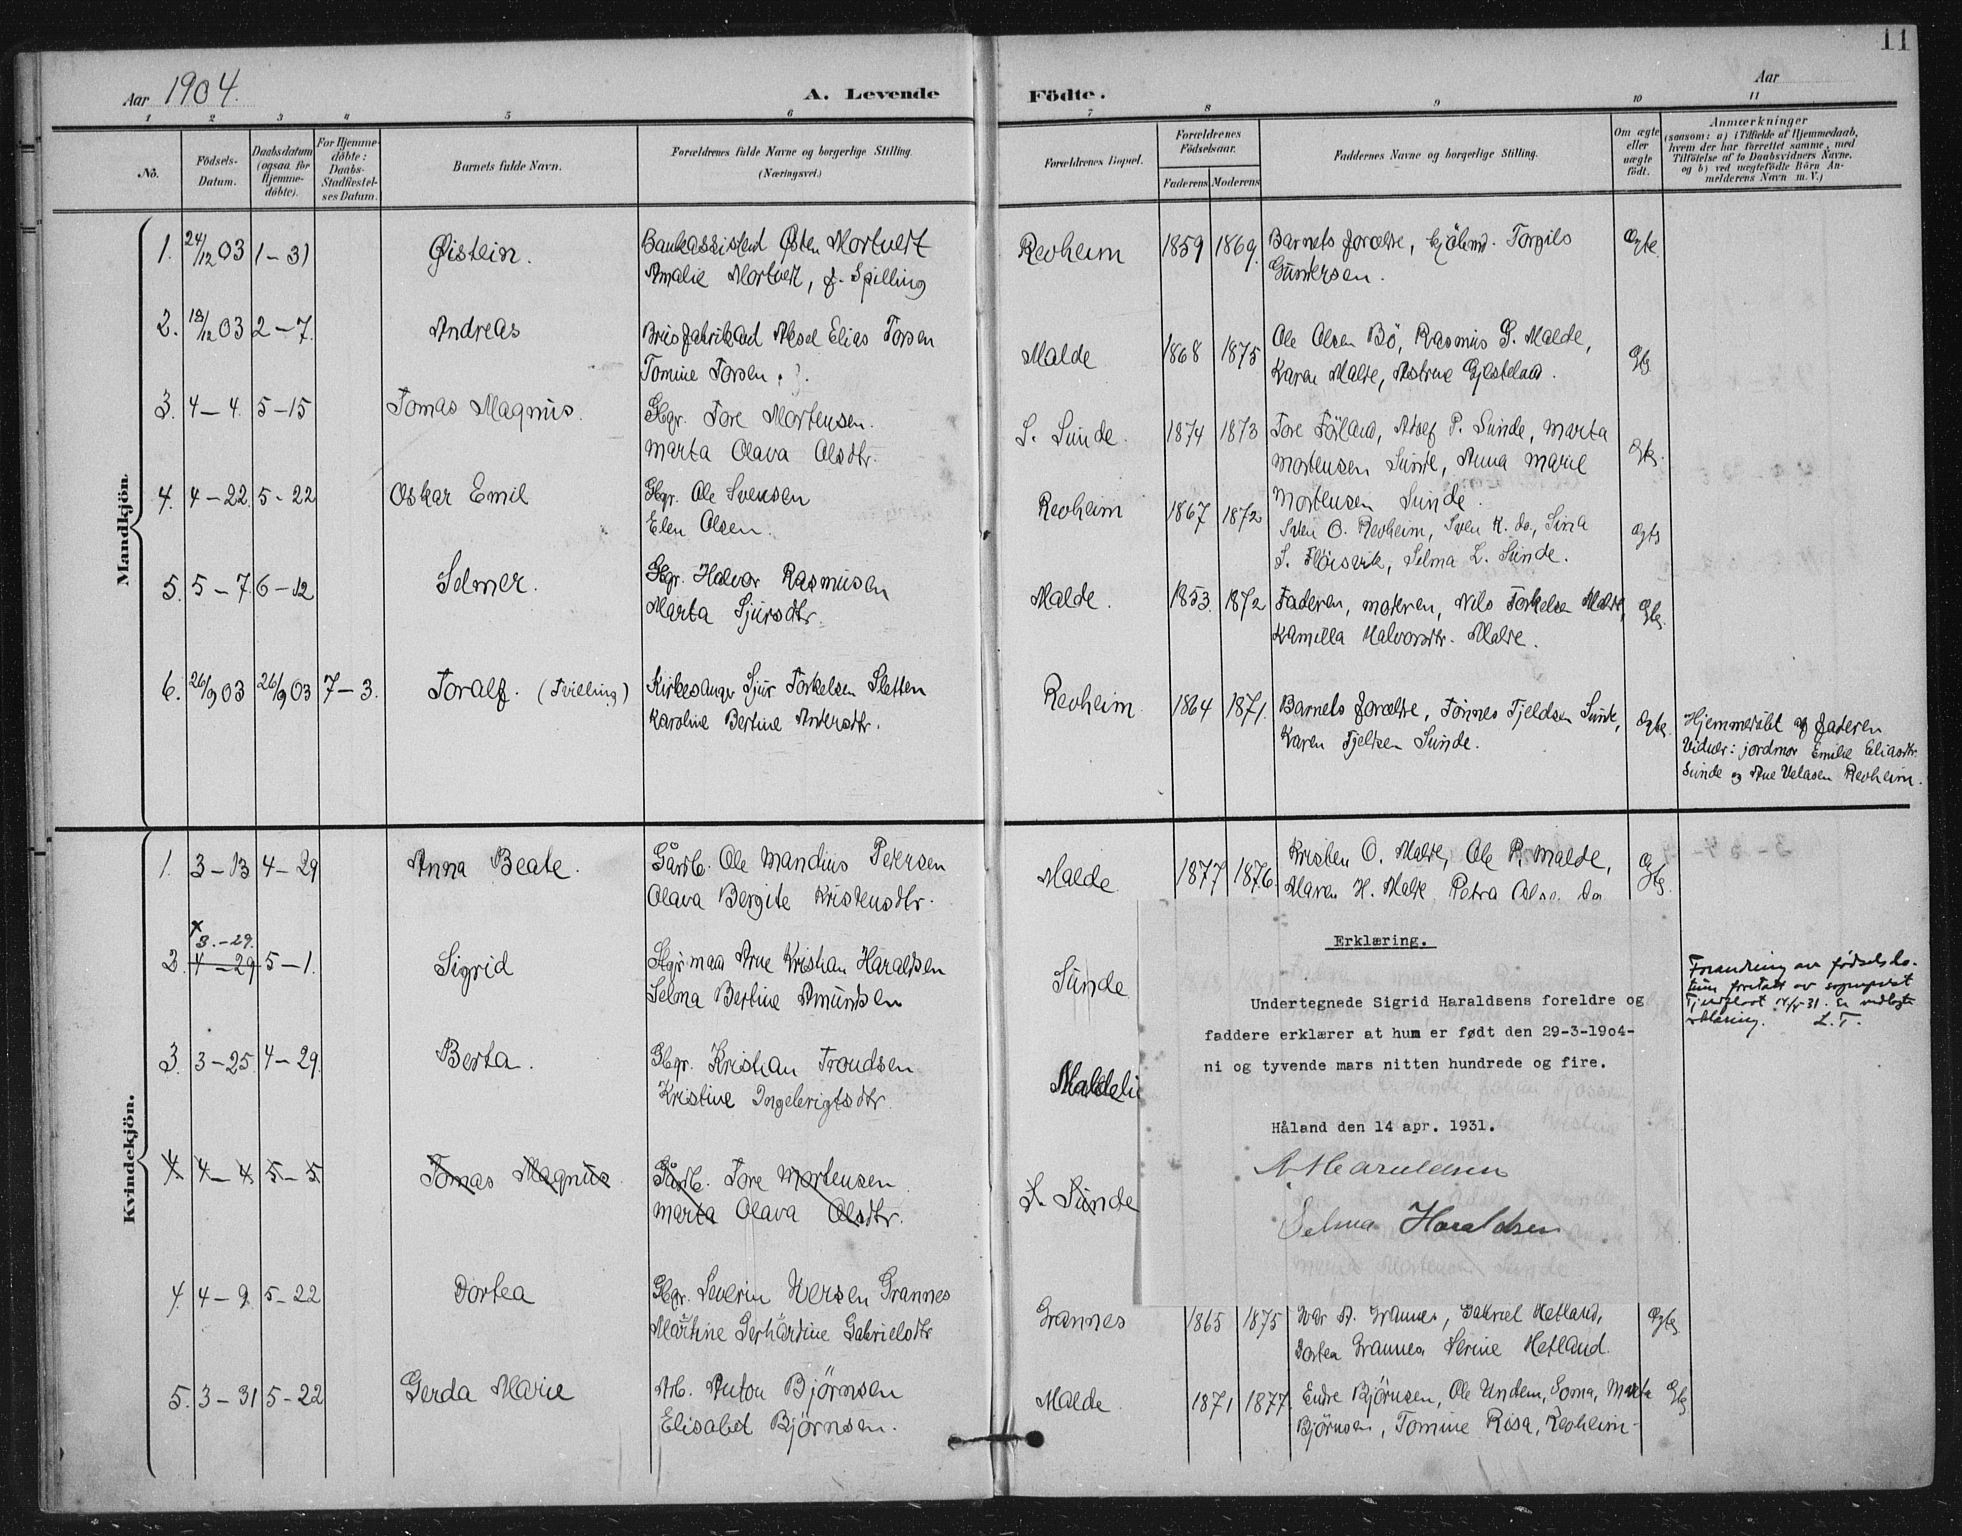 11
Aar 1904.
A. Levende Födte.
Aar
1 2 3 4 5 6 7 8 9 10 11
No.
Födsels-
Datum.
Daabsdatum
(ogsaa for
Hjemme-
döbte).
For Hjemme-
döbte:
Daabs-
Stadfæstel-
ses Datum.
Barnets fulde Navn.
Forældrenes fulde Navne og borgerlige Stilling.
(Næringsvei.)
Forældrenes Bopæl.
Forældrenes
Födselsaar.
Faderens Moderens
Faddernes Navne og borgerlige Stilling.
Om ægte
eller
uægte
födt.
Anmærkninger
(saasom: a) i Tilfælde af Hjemmedaab,
hvem der har forrettet samme, med
Tilföielse af to Daabsvidners Navne,
og b) ved uægtefödte Börn An-
melderens Navn m. V.)
Mandkjön.
1. 24/12 03 1-31 Øistein. Bankassistent Østen Mortvedt Revheim 1859 1869. Barnets forældre, Torgils Ægte
Amalie Mortvedt, f. Spilling Gundersen.
2. 18/12 03 2-7. Andreas Aksel Elias Torsen Malde 1868 1875 Ole Olsen Bö, Rasmus G. Malde, Ægte
Tomine Torsen. Karen Malde, Astrue Gjesteland.
3. 4-4. 5-15 Tomas Magnus. Gbr. Tore Mortensen. S. Sunde. 1874 1873 Tore Föiland, Adolf P. Sunde, Marta Ægte.
Marta Olava Olsdtr. Mortensen Sunde, Anna Marie
Mortensen Sunde.
4. 4-22. 5-22 Oskar Emil Gbr. Ole Svensen Revheim 1867 1872 Sven O. Revheim, Sven K. do, Sina Ægte
Elen Olsen. S. Selma L. Sunde.
5. 5-7. 6-12 Selmer. Gbr. Halvor Rasmusen Malde. 1853. 1872 Faderen, moderen, Nils Torkelsen Malde, Ægte.
Marta Sjursdtr. Kamilla Halvorsdtr. Malde.
6. 26/9 03 26/9 03 7-3. Toralf. (Tvilling) Kirkesanger Sjur Torkelsen Sletten Revheim. 1864 1871. Barnets forældre, Tönnes Tjeldsen Sunde, Ægte.
Karoline Bertine Andersdtr. Karen Tjelsen Sunde.
Hjemmedöbt af faderen
Vidner: jordmor Emilie Eliasdtr.
Sunde og Ane Velasen Revheim.
Kvindekjön.
1. 3-13 4-29 Anna Beate. Gårdb. Ole Mandius Pedersen Malde 1877 1876 Kristen O. Malde, Ole P. Malde, Ægte.
Olava Bergite Kristensdtr. Maren H. Malde, Petra Olsen do
2. x 3.-29. 4-29. 5-1. Sigrid Arne Kristian Haraldsen Sunde
Selma Bertine Amundsen
Forandring av fødselsda-
tum foretatt av sogneprest
14/4-31. Se vedlagte
erklæring. L.T.
3. 3-25. 4-29. Berta. Gbr. Kristian Trondsen
Kristine Ingebrigtsdtr.
4 4-4 5-5 Tomas Magnus. Gårdb. Tore Mortensen. S. Sunde
Marta Olava Olsdtr.
Erklæring.
Undertegnede Sigrid Haraldsens foreldre og
faddere erklærer at hun er født den 29-3-1904-
ni og tyvende mars nitten hundrede og fire.
Håland den 14 apr. 1931.
A Haraldsen
Selma Haraldsen
4. 4-9. 5-22 Dortea Gbr. Severin Iversen Grannes Grannes 1865 1875 Ivar A. Grannes, Gabriel Hetland, Ægte
Martine Gerhardine Gabrielsdtr Dortea Grannes Serine Hetland.
5. 3-31 5-22 Gerda Marie Arb. Anton Björnsen Malde. 1871 1877. Endre Björnsen, Ole Undem, Soma, Marta Ægte
Elisabet Björnsen. Björnsen, Tomine Risa, Revheim-